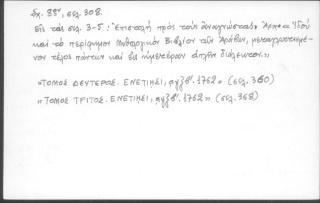 Σχ. 88ν, σελ. 308.
Εἰς τὰς σελ. 3-5: "Ἐπιστολὴ πρὸς τοὺς ἀναγνώστας" Ἄρχεται "Ἰδοὺ
καὶ τὸ περίφημον Μυθολογικὸν Βιβλίον τῶν Ἀράβων, μεταγλωττισμέ-
νον τέλος πάντων καὶ εἰς ἡμετέραν ἁπλῆν διάλεκτον."
«ΤΟΜΟΣ ΔΕΥΤΕΡΟΣ. ΕΝΕΤΙΗΣΙ, ͵αψξβ'. 1762» (σελ. 360)
«ΤΟΜΟΣ ΤΡΙΤΟΣ. ΕΝΕΤΙΗΣΙ, ͵αψξβ'. 1762» (σελ. 368)